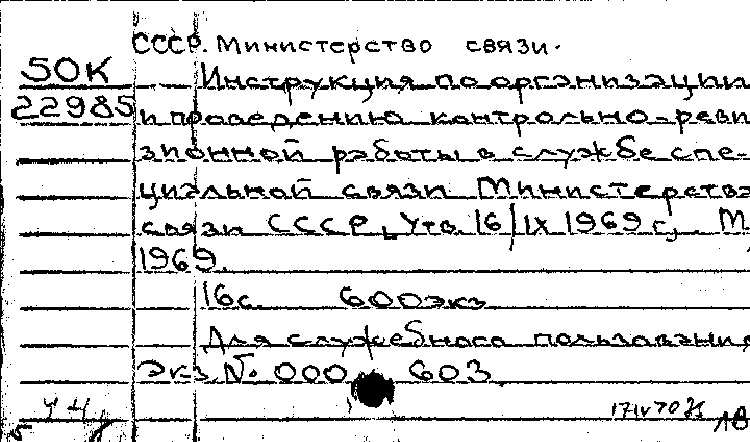 СССР. Министерство связи.
50К
22985
Инструкция по организации
и проведению контрольно-реви
зионной работы в службе спе-
циальной связи Министерства
связи СССР, Утв. 16/IX 1969 г, . М
1969.
16 с. 600 экз
Для служебного пользования
Экз. № 000 603